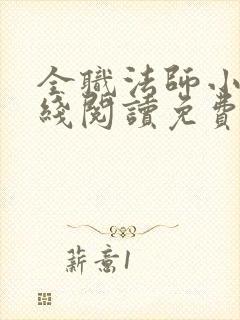 全職法師小
綫閱讀免費
薪意1